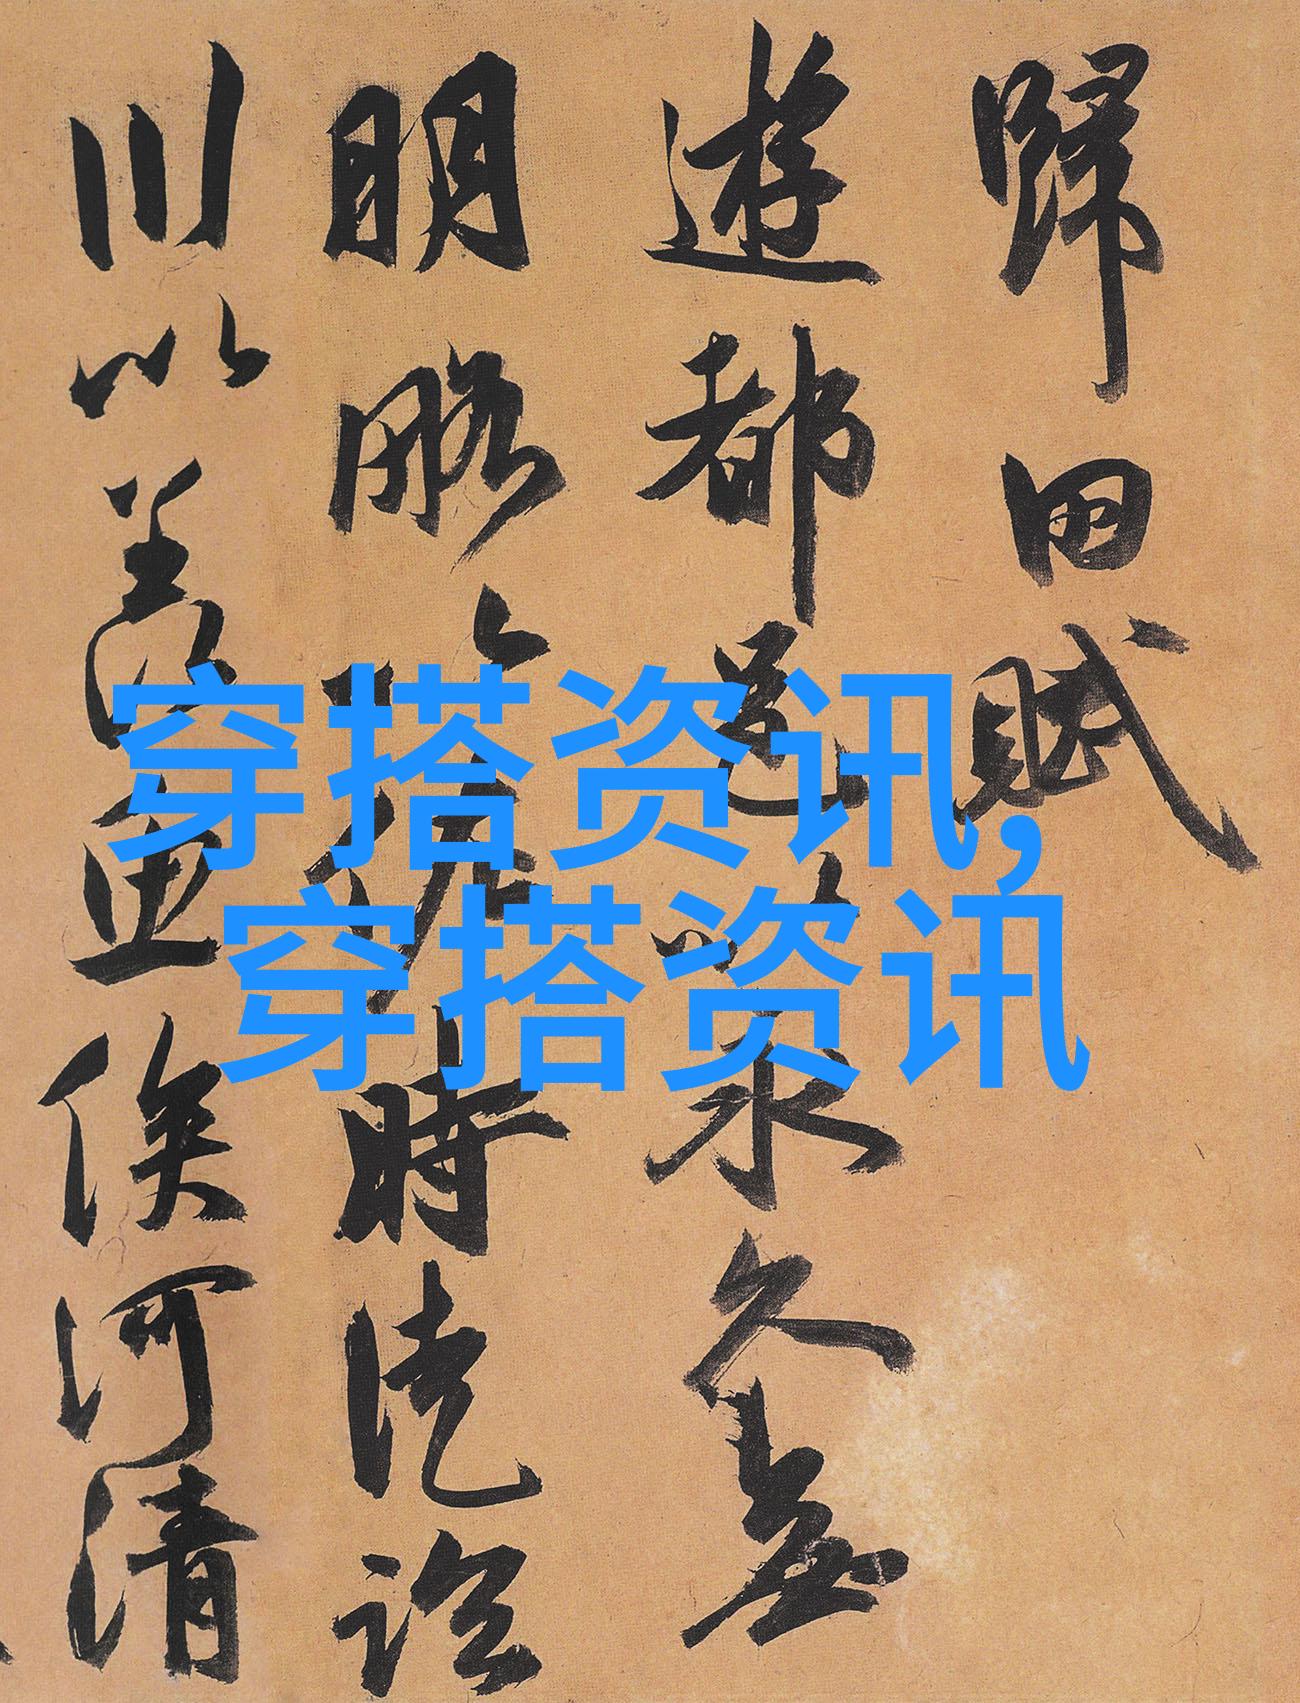 歸田賦
遊都邑以永久無
明略以佐時徒臨
川以羡魚俟河清
穿搭资讯,
穿搭资讯